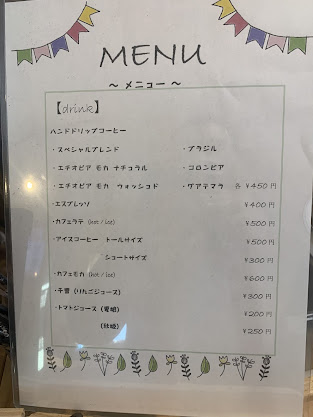 MENU
～ メニュー ～
【drink】
ハンドドリップコーヒー
・スペシャルブレンド ・ブラジル
・エチオピア モカ ナチュラル ・コロンビア
・エチオピア モカ ウォッシュド ・グアテマラ 各 ¥450円
・エスプレッソ ¥400円
・カフェラテ (hot / ice) ¥500円
・アイスコーヒー トールサイズ ¥500円
ショートサイズ ¥300円
・カフェモカ (hot / ice) ¥600円
・千雪 (りんごジュース) ¥300円
・トマトジュース (愛姫) ¥200円
¥250円